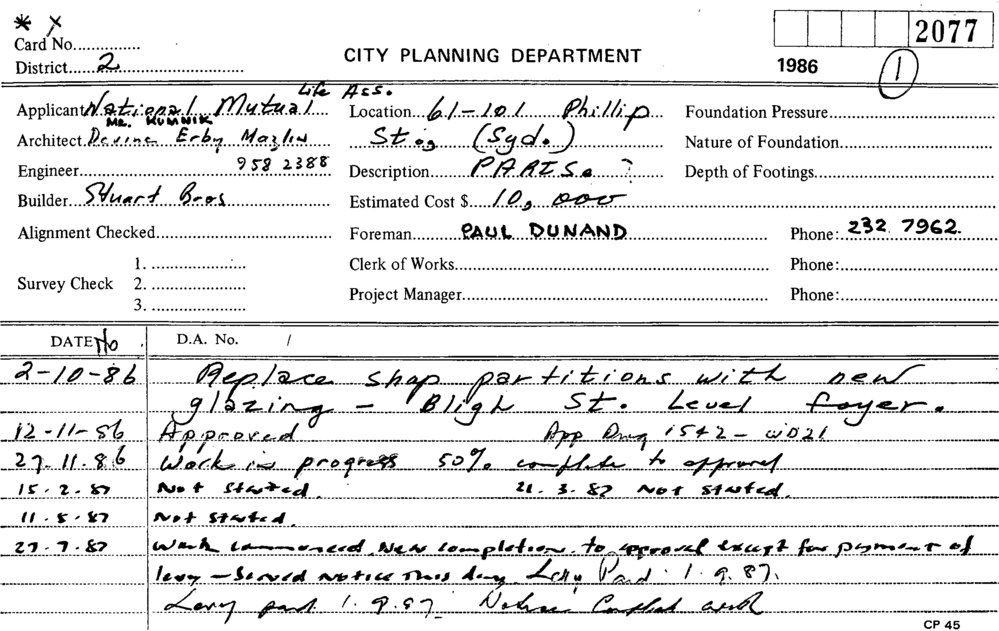 * x
Card No.
2077
District 2
CITY PLANNING DEPARTMENT
1986
1
Life Ass.
Applicant National Mutual
Location 61-101 Phillip
Foundation Pressure
MR. KUMNIK
Architect Devine Erby Mazlin
St., (Syd.)
Nature of Foundation
Engineer 958 2388
Description PARTS. ?
Depth of Footings
Builder Stuart Bros
Estimated Cost $ 10,000
Alignment Checked
Foreman PAUL DUNAND
Phone: 232 7962.
Survey Check
1.
2.
3.
Clerk of Works
Phone:
Project Manager
Phone:
DATE No
D.A. No. /
2-10-86 Replace shop partitions with new
glazing - Bligh St. Level foyer.
12-11-86 Approved App Drwg 1542-WD21
27.11.86 Work in progress 50% complete to approval
15.2.87 Not started. 21.3.87 Not started.
11.5.87 Not started.
27.7.87 Work commenced New completion to approval except for payment of
levy - Served notice this day Levy Paid 1.9.87.
Levy paid 1.9.87 work
CP 45